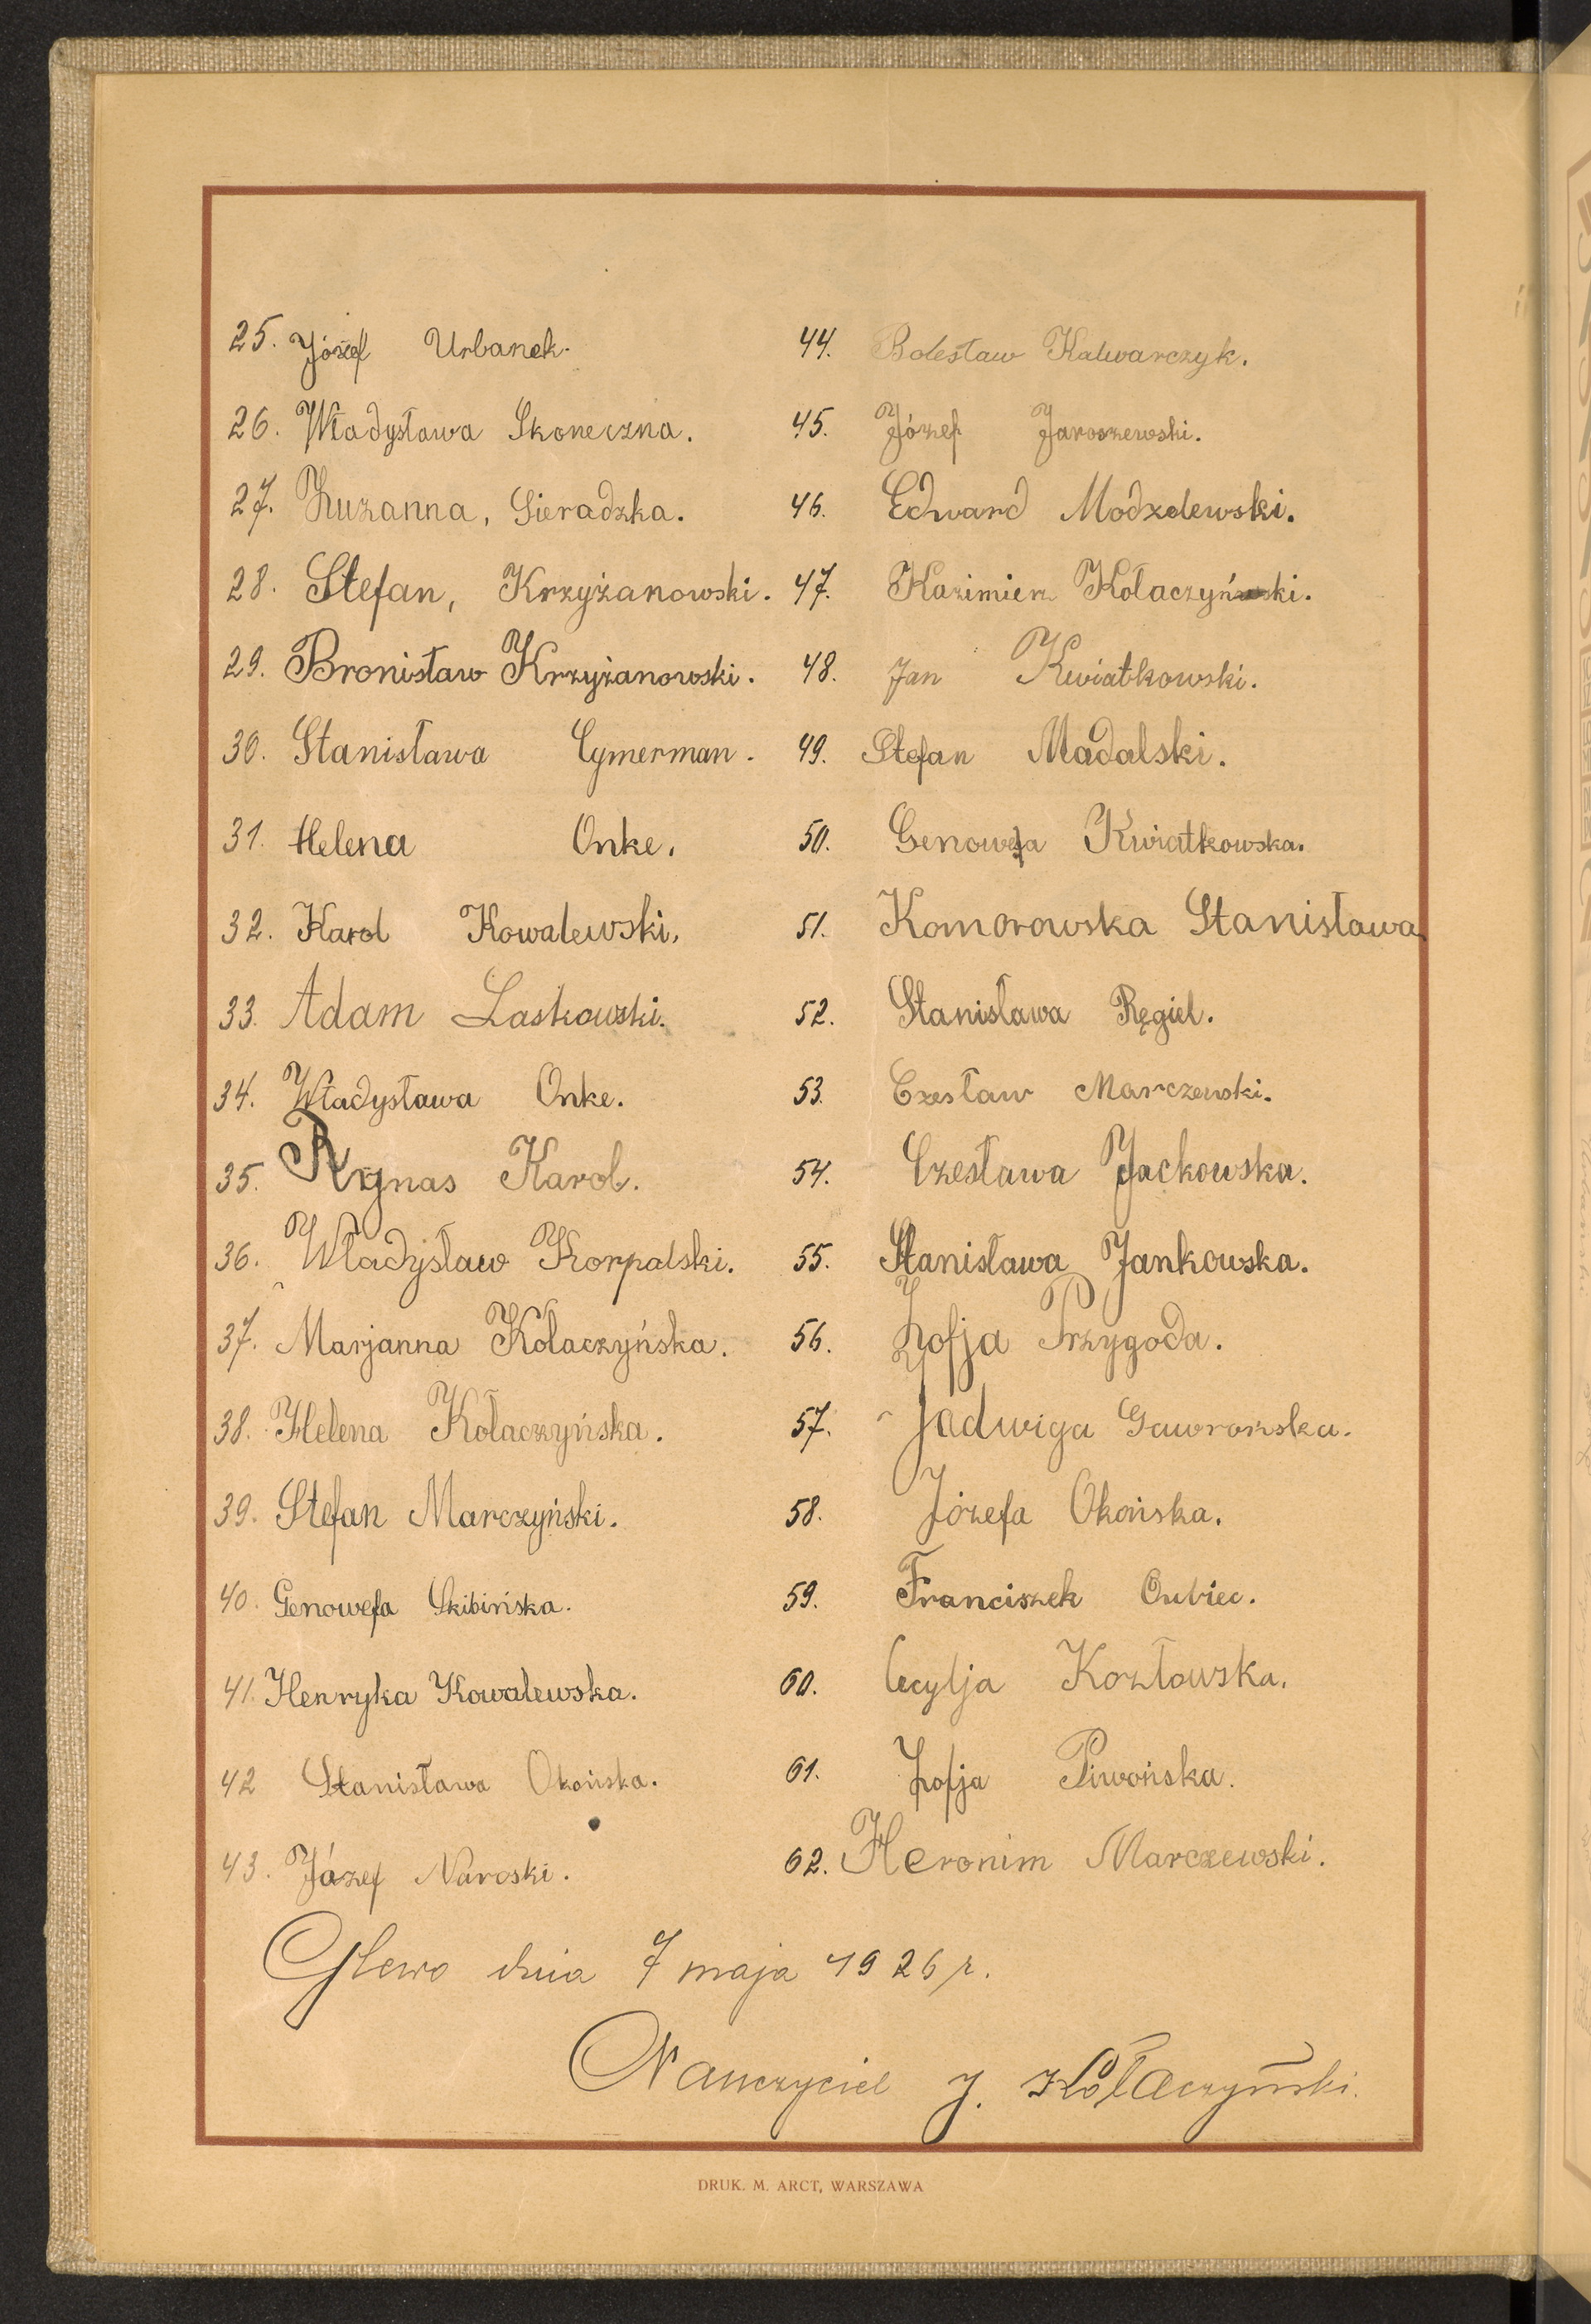 25. Józef Urbanek.
26. Władysława Skoneczna.
27. Zuzanna, Sieradzka.
28. Stefan, Krzyżanowski.
29. Bronisław Krzyżanowski.
30. Stanisława Cymerman.
31. Helena Onke.
32. Karol Kowalewski.
33. Adam Laskowski.
34. Władysława Onke.
35. Rygnas Karol.
36. Władysław Korpalski.
37. Marjanna Kołaczyńska.
38. Helena Kołaczyńska.
39. Stefan Marczyński.
40. Genowefa Skibińska.
41. Henryka Kowalewska.
42 Stanisława Okońska.
43. Józef Naroski.
44. Bolesław Kalwarczyk.
45. Józef Jaroszewski.
46. Edward Modzelewski.
47. Kazimierz Kołaczyński.
48. Jan Kwiatkowski.
49. Stefan Madalski.
50. Genowefa Kwiatkowska.
51. Komorowska Stanisława
52. Stanisława Ręgiel.
53. Czesław Marczewski.
54. Czesława Jackowska.
55. Stanisława Jankowska.
56. Zofja Przygoda.
57. Jadwiga Gaworoska.
58. Józefa Okońska.
59. Franciszek Cubiec.
60. Cecylja Kozłowska.
61. Zofja Piwońska.
62. Heronim Marczewski.
Głewo dnia 7 maja 1926 r.
Nauczyciel J. Kołaczyński.
DRUK. M. ARCT, WARSZAWA